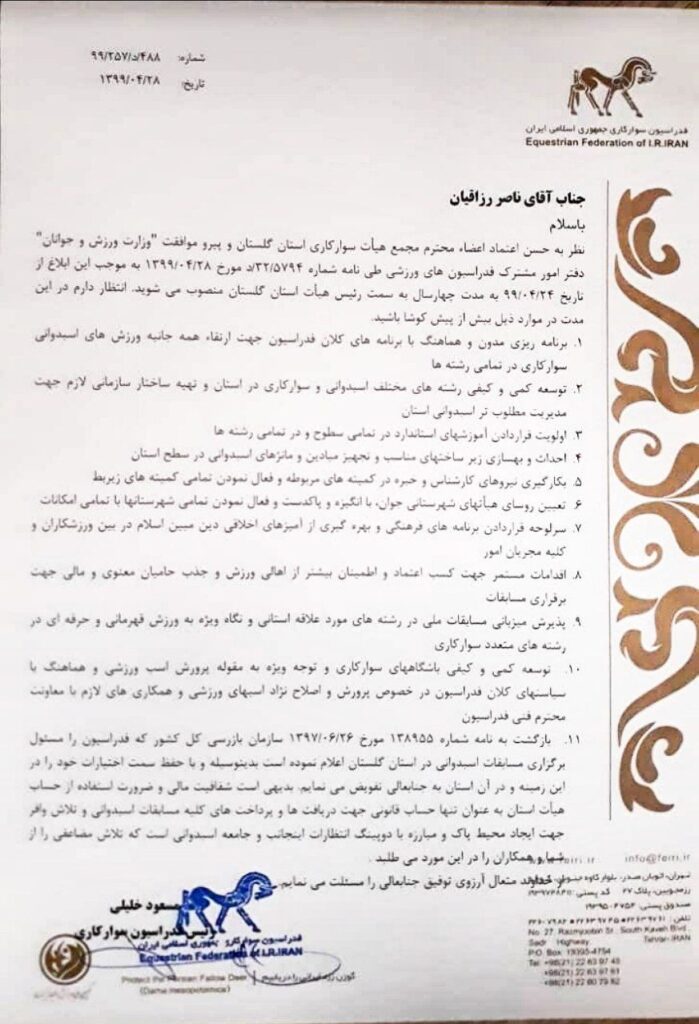 شماره: ۹۹/۲۵۷/د/۴۸۸
تاریخ: ۱۳۹۹/۰۴/۲۸
فدراسیون سوارکاری جمهوری اسلامی ایران
Equestrian Federation of I.R.IRAN
جناب آقای ناصر رزاقیان
باسلام
نظر به حسن اعتماد اعضاء محترم مجمع هیأت سوارکاری استان گلستان و پیرو موافقت "وزارت ورزش و جوانان"
دفتر امور مشترک فدراسیون های ورزشی طی نامه شماره ۳۲/۵۷۹۴/د مورخ ۱۳۹۹/۰۴/۲۸ به موجب این ابلاغ از
تاریخ ۹۹/۰۴/۲۴ به مدت چهارسال به سمت رئیس هیأت استان گلستان منصوب می شوید. انتظار دارم در این
مدت در موارد ذیل بیش از پیش کوشا باشید.
۱. برنامه ریزی مدون و هماهنگ با برنامه های کلان فدراسیون جهت ارتقاء همه جانبه ورزش های اسبدوانی
سوارکاری در تمامی رشته ها
۲. توسعه کمی و کیفی رشته های مختلف اسبدوانی و سوارکاری در استان و تهیه ساختار سازمانی لازم جهت
مدیریت مطلوب تر اسبدوانی استان
۳. اولویت قراردادن آموزشهای استاندارد در تمامی سطوح و در تمامی رشته ها
۴. احداث و بهسازی زیر ساختهای مناسب و تجهیز میادین و مانژهای اسبدوانی در سطح استان
۵. بکارگیری نیروهای کارشناس و خبره در کمیته های مربوطه و فعال نمودن تمامی کمیته های زیربط
۶. تعیین روسای هیأتهای شهرستانی جوان، با انگیزه و پاکدست و فعال نمودن تمامی شهرستانها با تمامی امکانات
۷. سرلوحه قراردادن برنامه های فرهنگی و بهره گیری از آمیزهای اخلاقی دین مبین اسلام در بین ورزشکاران و
کلیه مجریان امور
۸. اقدامات مستمر جهت کسب اعتماد و اطمینان بیشتر از اهالی ورزش و جذب حامیان معنوی و مالی جهت
برقراری مسابقات
۹. پذیرش میزبانی مسابقات ملی در رشته های مورد علاقه استانی و نگاه ویژه به ورزش قهرمانی و حرفه ای در
رشته های متعدد سوارکاری
۱۰. توسعه کمی و کیفی باشگاههای سوارکاری و توجه ویژه به مقوله پرورش اسب ورزشی و هماهنگ با
سیاستهای کلان فدراسیون در خصوص پرورش و اصلاح نژاد اسبهای ورزشی و همکاری های لازم با معاونت
محترم فنی فدراسیون
۱۱. بازگشت به نامه شماره ۱۳۸۹۵۵ مورخ ۱۳۹۷/۰۶/۲۶ سازمان بازرسی کل کشور که فدراسیون را مسئول
برگزاری مسابقات اسبدوانی در استان گلستان اعلام نموده است بدینوسیله و با حفظ سمت اختیارات خود را در
این زمینه و در آن استان به جنابعالی تفویض می نمایم. بدیهی است شفافیت مالی و ضرورت استفاده از حساب
هیأت استان به عنوان تنها حساب قانونی جهت دریافت ها و پرداخت های کلیه مسابقات اسبدوانی و تلاش وافر
جهت ایجاد محیط پاک و مبارزه با دوپینگ انتظارات اینجانب و جامعه اسبدوانی است که تلاش مضاعفی را از
شما و همکاران را در این مورد می طلبد.
از خداوند متعال آرزوی توفیق جنابعالی را مسئلت می نمایم.
مسعود خلیلی
رئیس فدراسیون سوارکاری
فدراسیون سوارکاری جمهوری اسلامی ایران
Equestrian Federation of I.R.IRAN
گوزن زرد ایرانی را دریابیم
Protect the Persian Fallow Deer
(Dama mesopotamica)
info@feiri.ir
پلاک ۲۷ کد پستی:
صندوق پستی: ۱۹۳۹۵-۴۷۵۴
No. 27, Razmjooian St., South Kaveh Blvd.,
Sadr Highway, Tehran-IRAN
P.O. Box 19395-4754
Tel: +98(21) 22 63 97 45
+98(21) 22 63 97 61
+98(21) 22 60 79 82